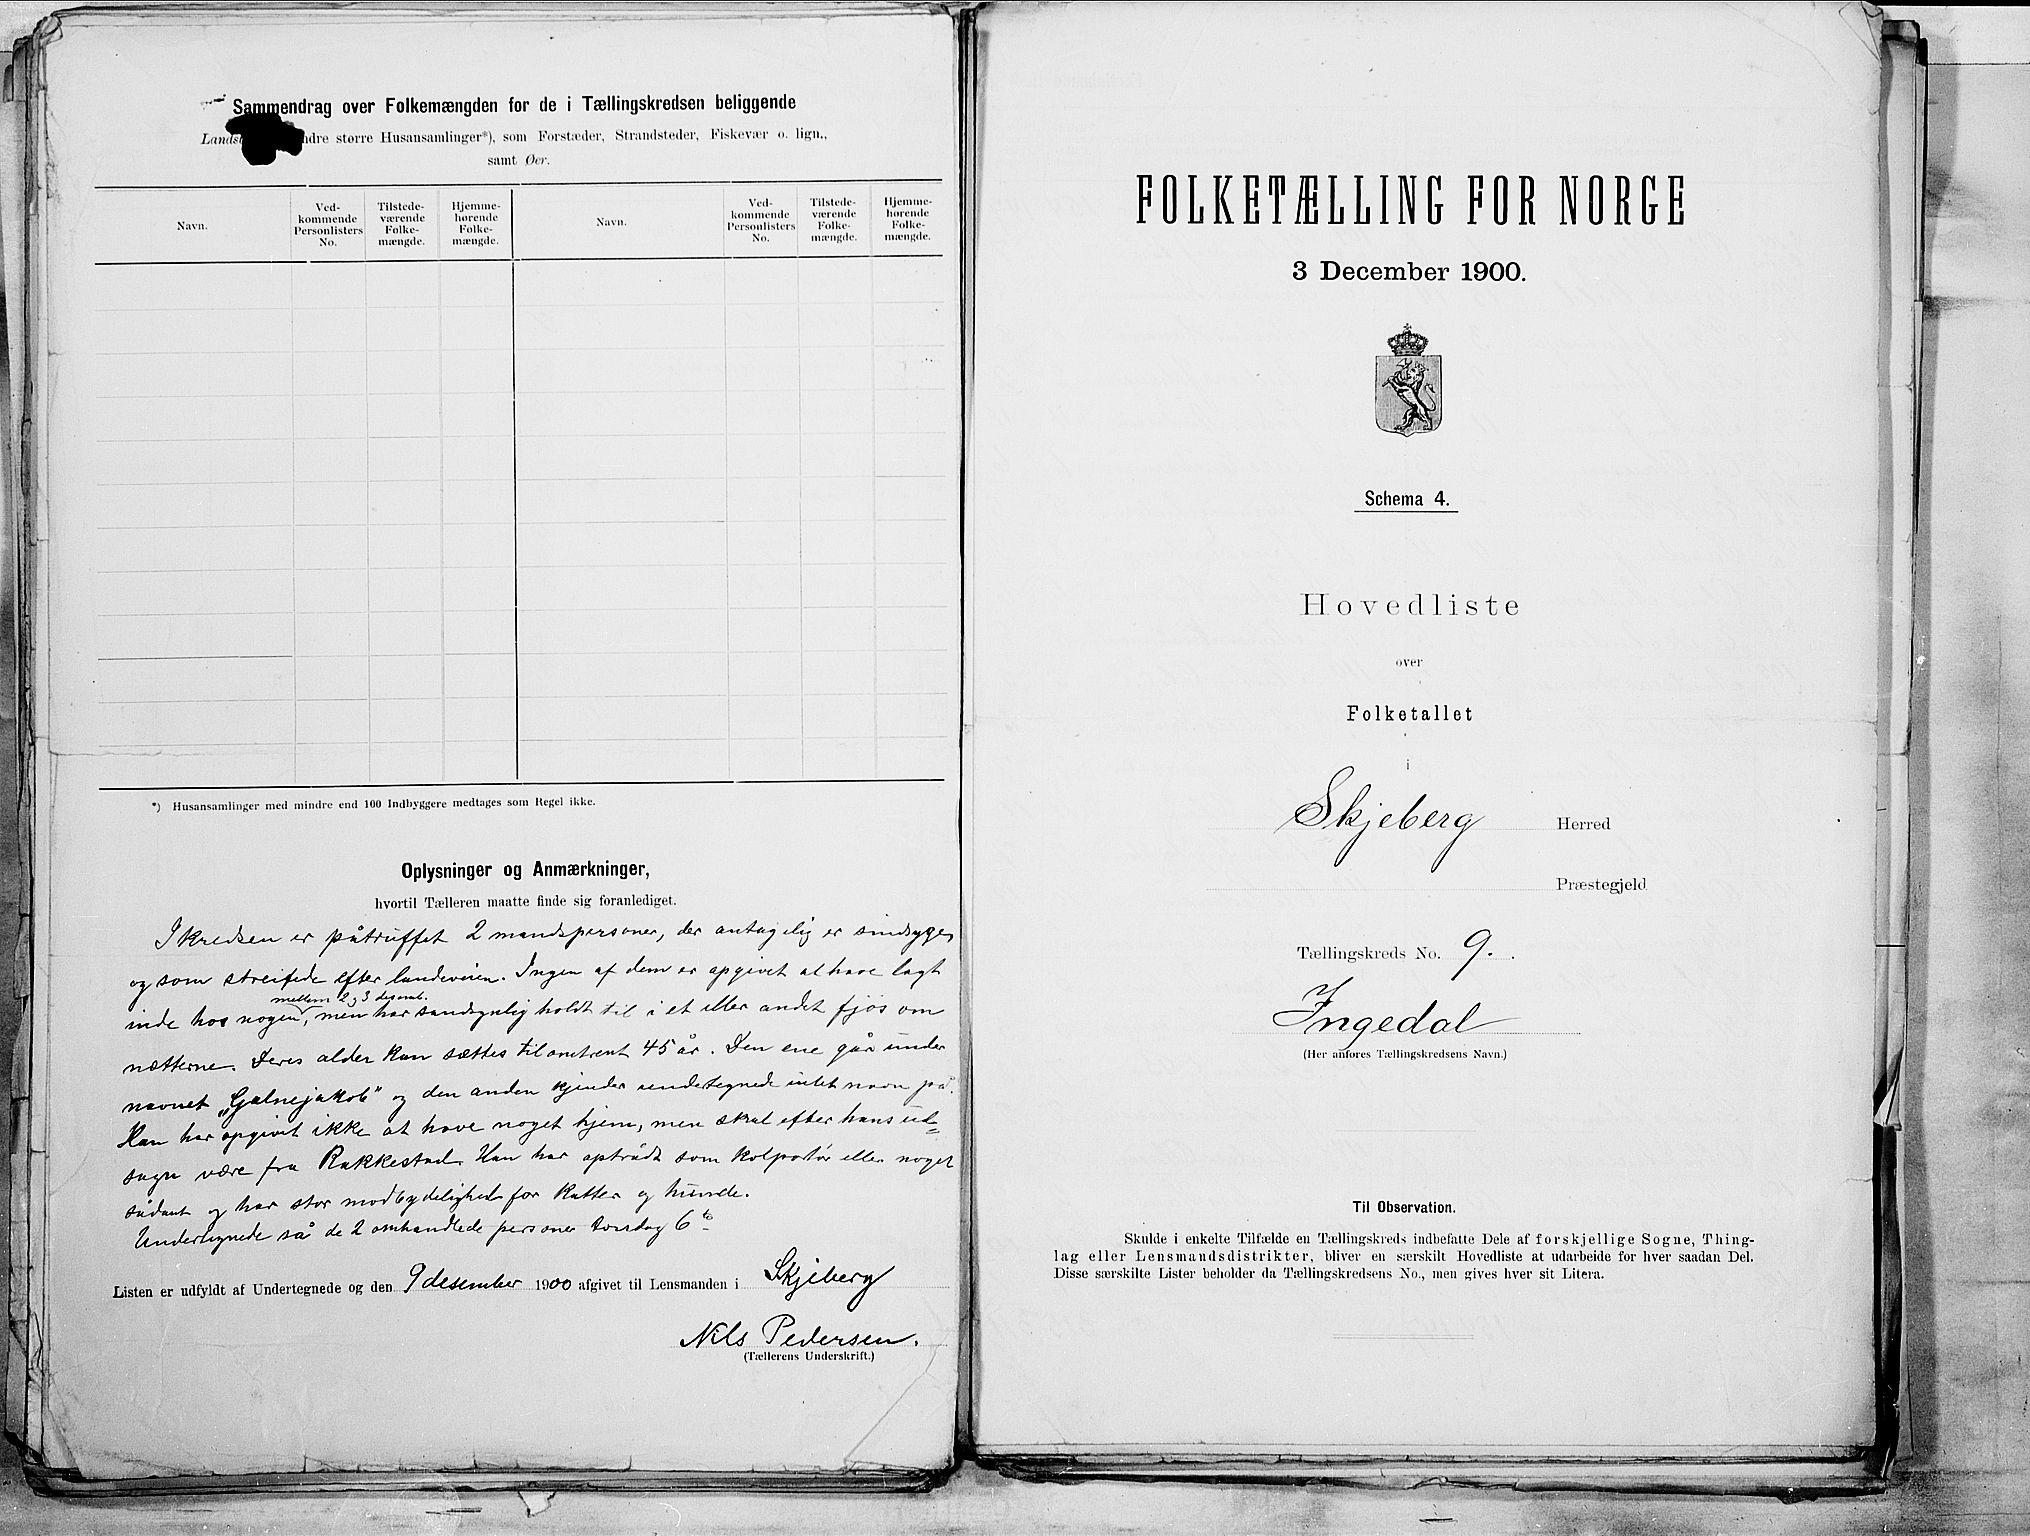 Sammendrag over Folkemængden for de i Tællingskredsen beliggende
større Husansamlinger*), som Forstæder, Strandsteder, Fiskevær o. lign.,
samt Øer.
Navn.
Ved-
kommende
Personlisters
No.
Tilstede-
værende
Folke-
mængde.
Hjemme-
hørende
Folke-
mængde.
Navn.
Ved-
kommende
Personlisters
No.
Tilstede-
værende
Folke-
mængde.
Hjemme-
hørende
Folke-
mængde.
*) Husansamlinger med mindre end 100 Indbyggere medtages som Regel ikke.
Oplysninger og Anmærkninger,
hvortil Tælleren maatte finde sig foranlediget.
I kredsen er påtruffet 2 mandspersoner, der antagelig er sindsyge,
og som streifede efter landeveien. Ingen af dem er opgivet at have lagt
mellem 2 og 3 desmb.
inde hos nogen, men har sandsynlig holdt til i et eller andet fjøs om
nætterne. Deres alder kan sættes til omtrent 45 år. Den ene går under
navnet „Galnejakob" og den anden kjender undertegnede intet navn på.
Han har opgivet ikke at have noget hjem, men skal efter hans ud-
sagn være fra Rakkestad. Han har optrådt som kolportør eller noget
sådant og har stor modbydelighed for katter og hunde.
Undertegnede så de 2 omhandlede personer torsdag 6te
Listen er udfyldt af Undertegnede og den 9 desember 1900 afgivet til Lensmanden i Skjeberg
Nils Pedersen.
(Tællerens Underskrift.)
FOLKETÆLLING FOR NORGE
3 December 1900.
Schema 4.
Hovedliste
over
Folketallet
i
Skjeberg Herred
Præstegjeld
Tællingskreds No. 9.
Ingedal
(Her anføres Tællingskredsens Navn.)
Til Observation.
Skulde i enkelte Tilfælde en Tællingskreds indbefatte Dele af forskjellige Sogne, Thing-
lag eller Lensmandsdistrikter, bliver en særskilt Hovedliste at udarbeide for hver saadan Del.
Disse særskilte Lister beholder da Tællingskredsens No., men gives hver sit Litera.